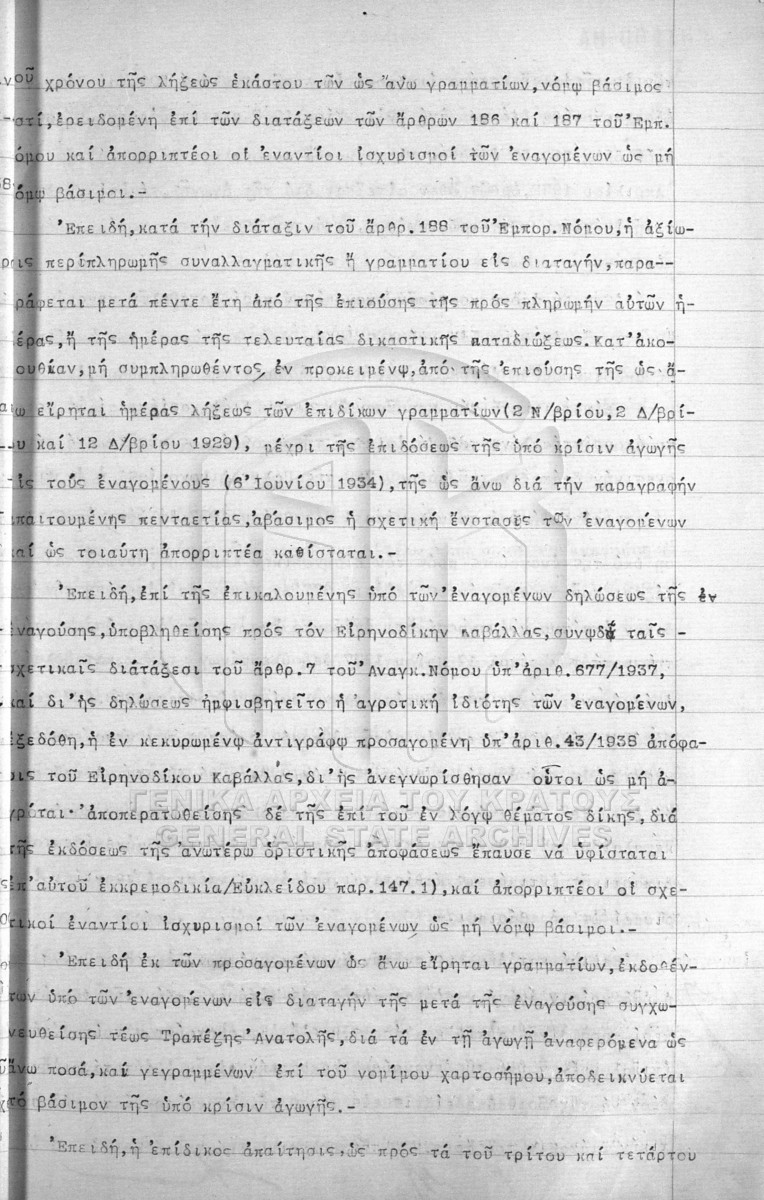 νοῦ χρόνου τῆς λήξεως ἑκάστου τῶν ὡς ἄνω γραμματίων,νόμῳ βάσιμος
ἐρειδομένη ἐπί τῶν διατάξεων τῶν ἄρθρων 186 καί 187 τοῦ Ἐμπ.
όμου καί ἀπορριπτέοι οἱ ἐναντίοι ἰσχυρισμοί τῶν ἐναγομένων ὡς μή
όμῳ βάσιμοι.-
Ἐπειδή,κατά τήν διάταξιν τοῦ ἄρθρ.186 τοῦ Ἐμπορ.Νόμου,ἡ ἀξίω-
ρις περίπληρωμῆς συναλλαγματικῆς ἤ γραμματίου εἰς διαταγήν,παρα--
ράφεται μετά πέντε ἔτη ἀπό τῆς ἐπιούσης τῆς πρός πληρωμήν αὐτῶν ἡ-
έρας,ἤ τῆς ἡμέρας τῆς τελευταίας δικαστικῆς καταδιώξεως.Κατ'ἀκο-
ουθίαν,μή συμπληρωθέντος, ἐν προκειμένῳ,ἀπό τῆς ἐπιούσης τῆς ὡς ἄ-
ω εἴρηται ἡμέρας λήξεως τῶν ἐπιδίκων γραμματίων(2 Ν/βρίου,2 Δ/βρί-
υ καί 12 Δ/βρίου 1929), μέχρι τῆς ἐπιδόσεως τῆς ὑπό κρίσιν ἀγωγῆς
ἰς τούς ἐναγομένους (6 Ἰουνίου 1934),τῆς ὡς ἄνω διά τήν παραγραφήν
παιτουμένης πενταετίας,ἀβάσιμος ἡ σχετική ἔνστασις τῶν ἐναγομένων
καί ὡς τοιαύτη ἀπορριπτέα καθίσταται.-
Ἐπειδή,ἐπί τῆς ἐπικαλουμένης ὑπό τῶν ἐναγομένων δηλώσεως τῆς ἐν
ἐναγούσης,ὑποβληθείσης πρός τόν Εἰρηνοδίκην Καβάλλας,συνῳδά ταῖς -
σχετικαῖς διάταξεσι τοῦ ἄρθρ.7 τοῦ Ἀναγκ.Νόμου ὑπ'ἀριθ.677/1937,
καί δι'ἧς δηλώσεως ἠμφισβητεῖτο ἡ ἀγροτική ἰδιότης τῶν ἐναγομένων,
ἐξεδόθη,ἡ ἐν κεκυρωμένῳ ἀντιγράφῳ προσαγομένη ὑπ'ἀριθ.43/1938 ἀπόφα-
σις τοῦ Εἰρηνοδίκου Καβάλλας,δι'ἧς ἀνεγνωρίσθησαν οὗτοι ὡς μή ἀ-
γρόται·ἀποπερατωθείσης δέ τῆς ἐπί τοῦ ἐν λόγῳ θέματος δίκης,διά
τῆς ἐκδόσεως τῆς ἀνωτέρω ὁριστικῆς ἀποφάσεως ἔπαυσε νά ὑφίσταται
ἐπ'αὐτοῦ ἐκκρεμοδικία/Εὐκλείδου παρ.147.1),καί ἀπορριπτέοι οἱ σχε-
τικοί ἐναντίοι ἰσχυρισμοί τῶν ἐναγομένων ὡς μή νόμῳ βάσιμοι.-
Ἐπειδή ἐκ τῶν προσαγομένων ὡς ἄνω εἴρηται γραμματίων,ἐκδοθέν-
των ὑπό τῶν ἐναγομένων εἰς διαταγήν τῆς μετά τῆς ἐναγούσης συγχω-
νευθείσης τέως Τραπέζης Ἀνατολῆς,διά τά ἐν τῇ ἀγωγῇ ἀναφερόμενα ὡς
ἄνω ποσά,καί γεγραμμένων ἐπί τοῦ νομίμου χαρτοσήμου,ἀποδεικνύεται
τό βάσιμον τῆς ὑπό κρίσιν ἀγωγῆς.-
Ἐπειδή,ἡ ἐπίδικος ἀπαίτησις,ὡς πρός τά τοῦ τρίτου καί τετάρτου
ΓΕΝΙΚΑ ΑΡΧΕΙΑ ΤΟΥ ΚΡΑΤΟΥΣ
GENERAL STATE ARCHIVES